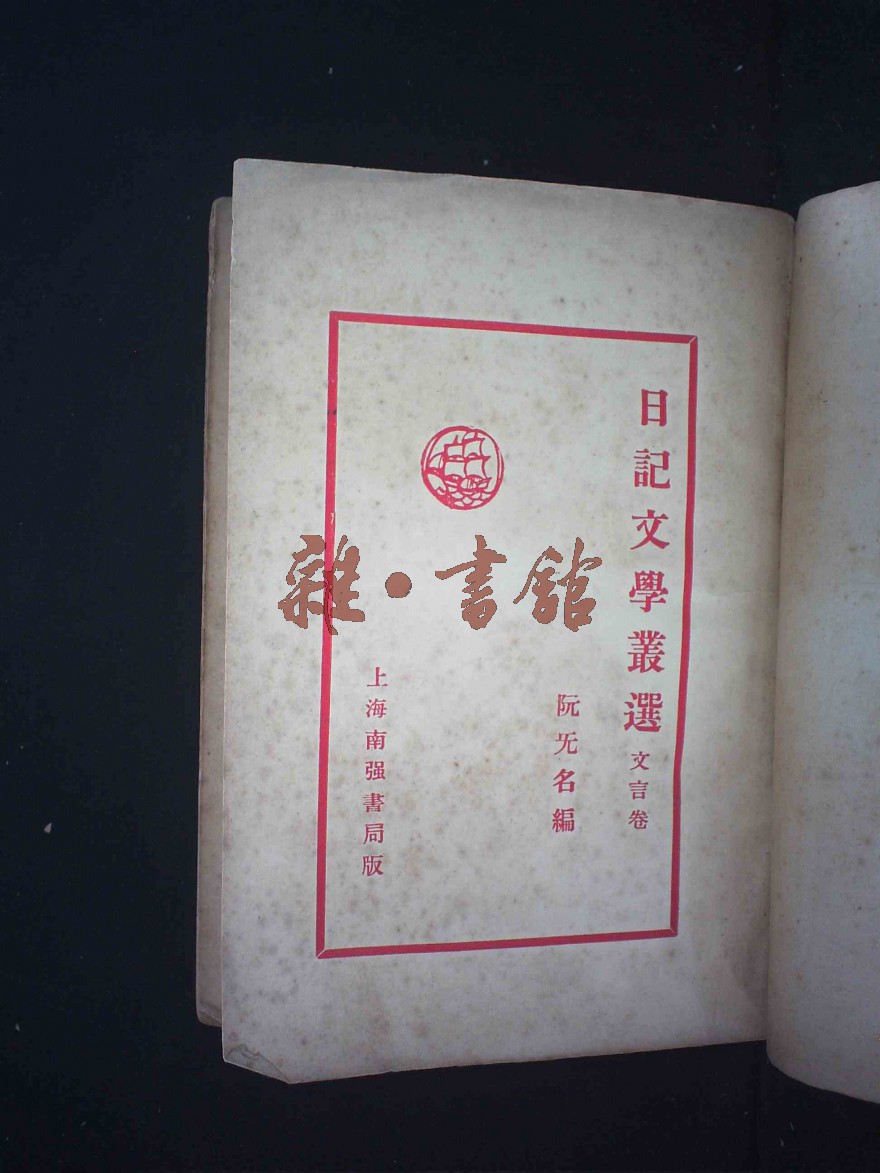 日記文學叢選 文言卷
阮旡名編
上海南强書局版
雜·書館